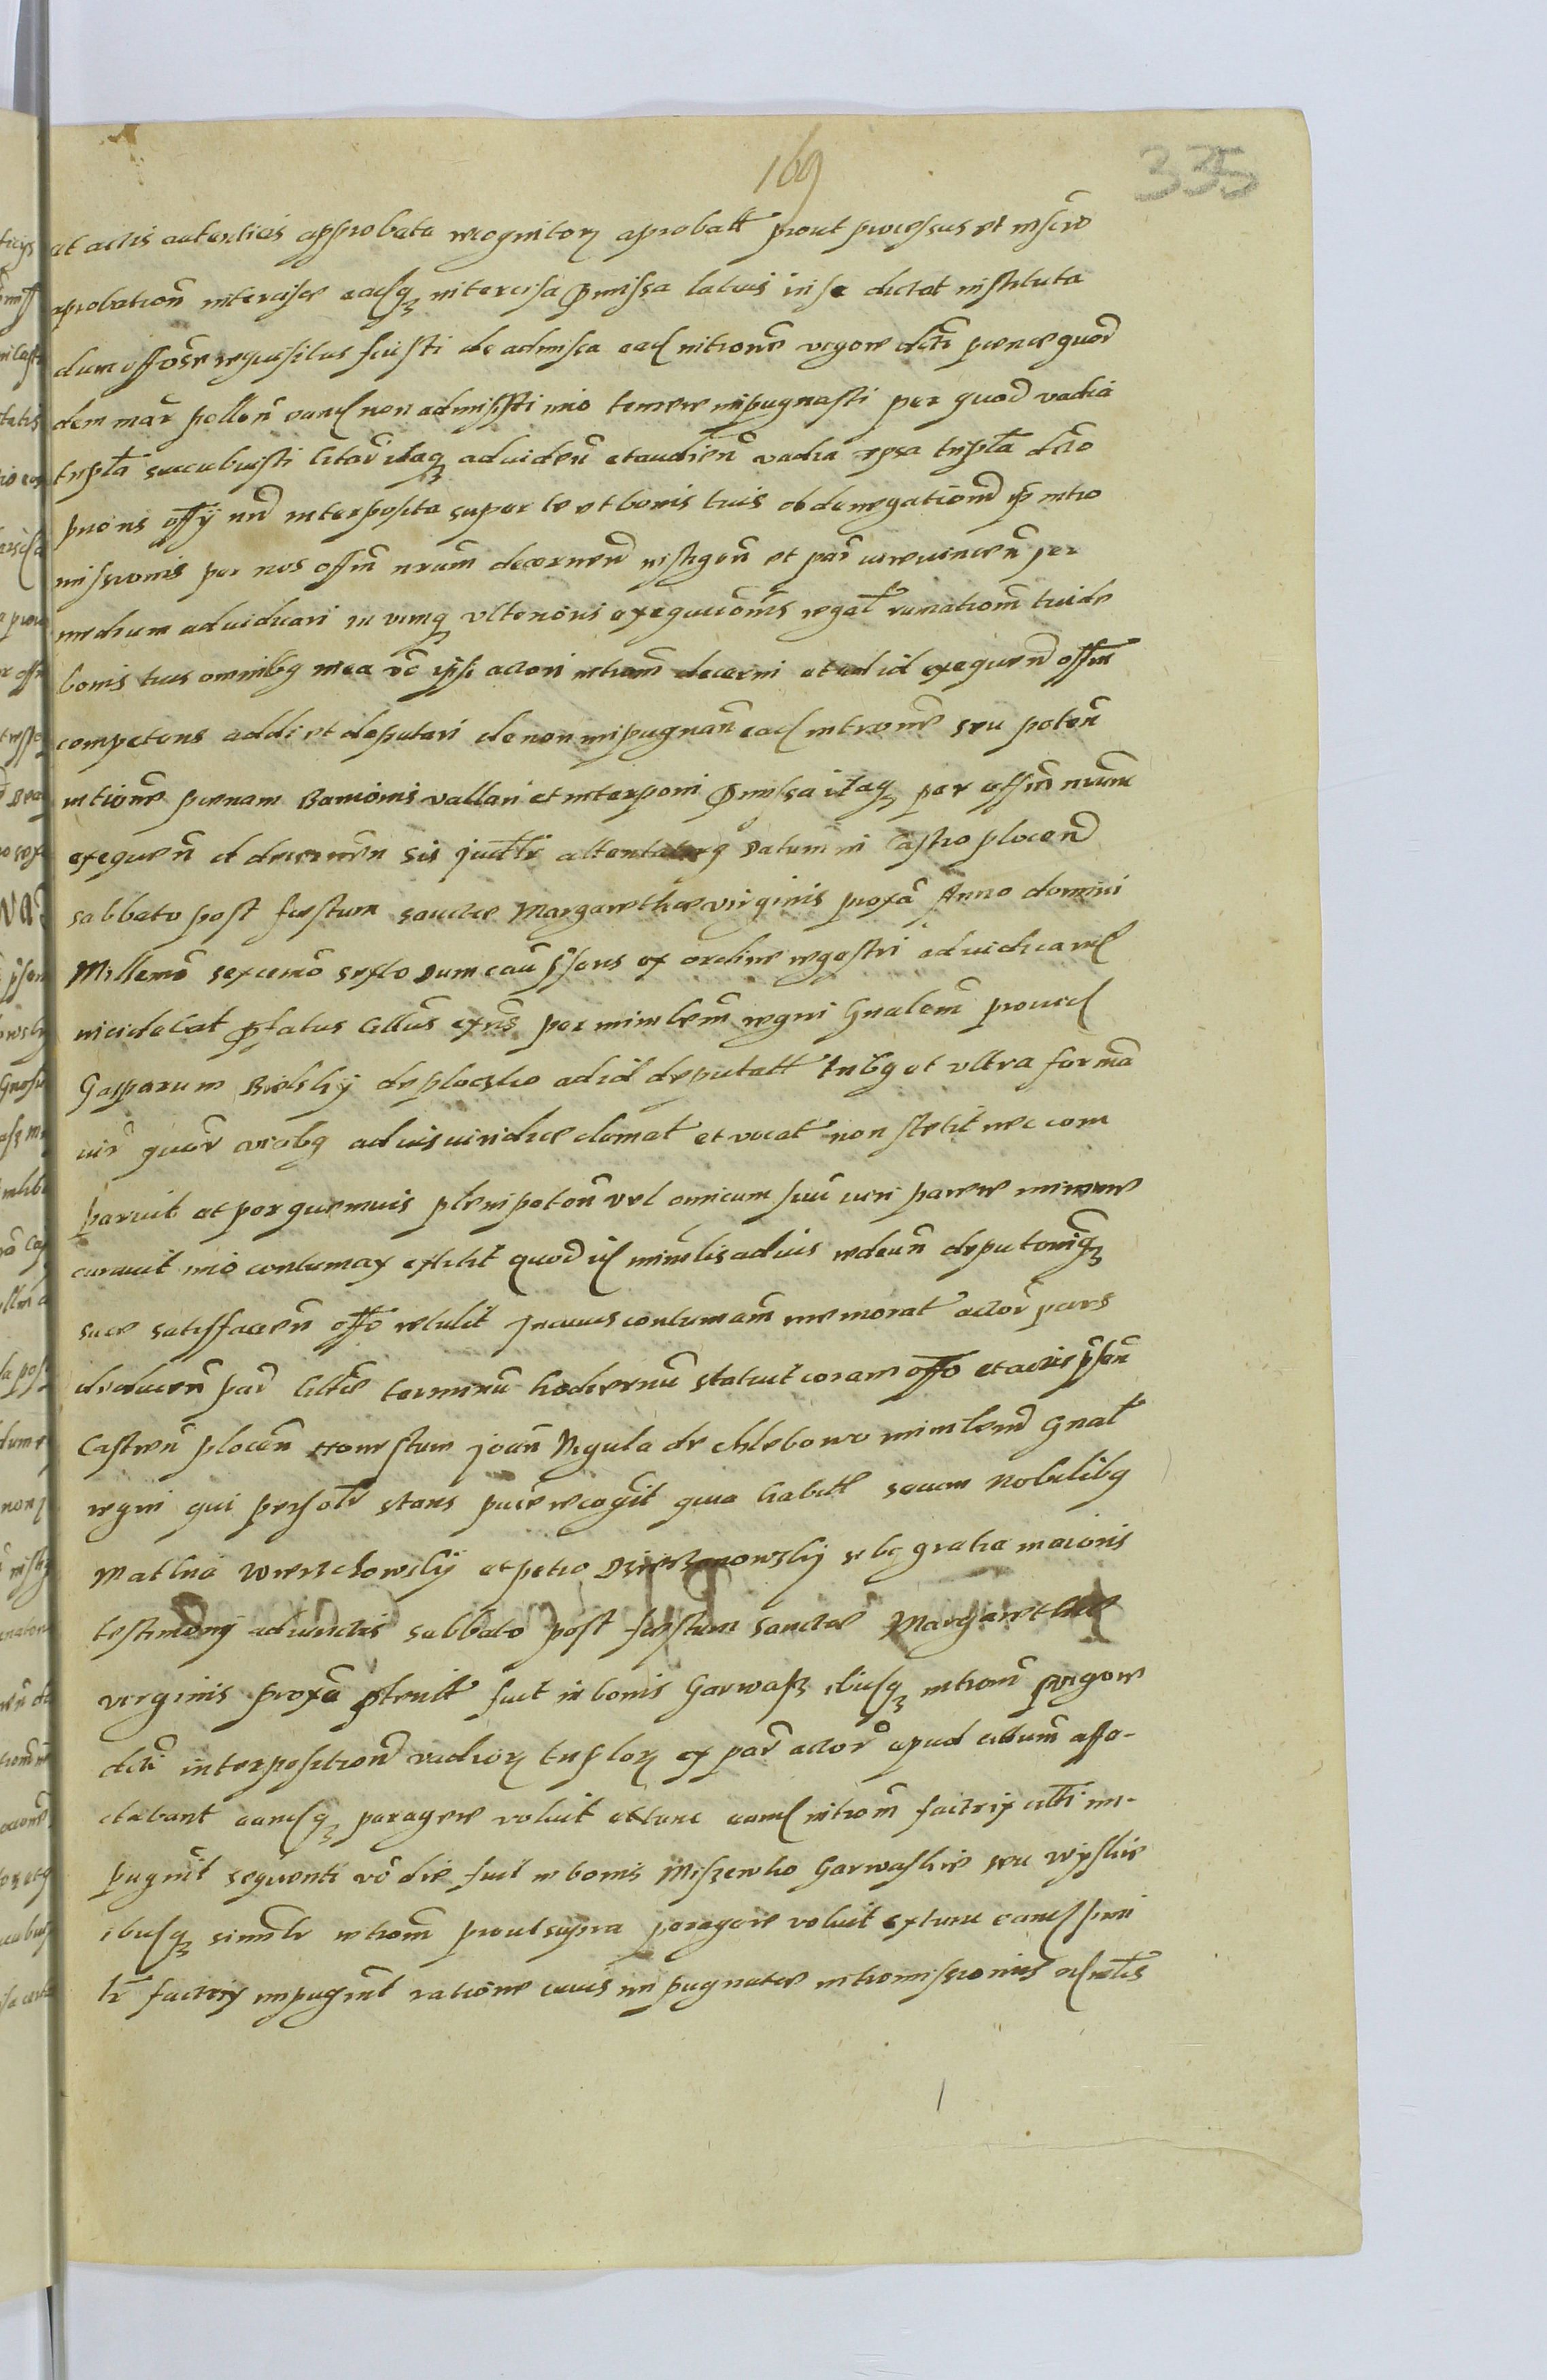 169
335
et actis autenticis approbata recognitorz aprobatt prout processus et inscro
aprobation intercisae eacsqz intercisa pmissa latius in se dictat instituta
dum offose requisitus fuisti de admissa eacd intione vigore dcti poenae quod
dem mar pollen eand non admisisti imo temere impugnasti per quod vadia
tripla succubuisti Citar itaqz ad videnda et audien vadia ipsa tripla dcto
pnonis offy nri interposita super te et bonis tuis ob denegationem ip intro
missionis per nos offm nrum decernend instigen et par iure vincen per
medium adiudicari in vimqz ulterioris exequuonis regal ramationem tui de
bonis tuis omnibg mea vo ipsi actori intiom decerni et ad id exequend offm
competens addi et deputari de non impugnan eacd intione seu poten
intione poenam Banionis vallari et interponi pmissa itaqz per offm nrum
exequen et decernen sis juditr attentaturg Datum in Castro plocen
sabbato post festum sanctae Margarethae virginis proxa Anno domini
Millemo sexcemo sexto Dum cau psens ex ordine regestri adiudicand
incidebat pfatus Cittus exns per mimlem regni Gnalem provid
Gasparum Bielsky de plocsko ad id deputatt tribg et ultra forma
iur quor vicibg ad ius iuridice clamat et vocat non stetit nec com
paruit et per quemuis plenipoten vel amicum suu iuri parere minime
curavit imo contumax extitit quod id minlis ad ius redeun deputoniqz
suae satisfacien offo retulit In cuius contumam memorat actor pars
deducen par Cittae terminu hodiernu statuit coram offo et actis psen
Castren plocen honestum joan Regula de Chlebowo mimlem Gnal
regni qui persolr stans pure recogit quia habitt secum nobilibg
Mathia Wierzchowsky et petro Dzierzanowsky sibi gratia maioris
testimony adiunctis sabbato post festum sanctae Margarethae
virginis proxa pterit fuit in bonis Garwasz ibisqz intiom vigore
dcti interposition vadiorz triplorz ex par actor apud cittum affe-
ctabant eamsqz peragere voluit et tunc eand intiom factrix citti im-
pugnit sequenti vo die fuit in bonis Miszewko Garwaskie seu wyskie
ibisqz similr intiom prout supra peragere voluit ex tunc eand simi
lr factrix impugnit ratione cuius impugnatae intromissionis